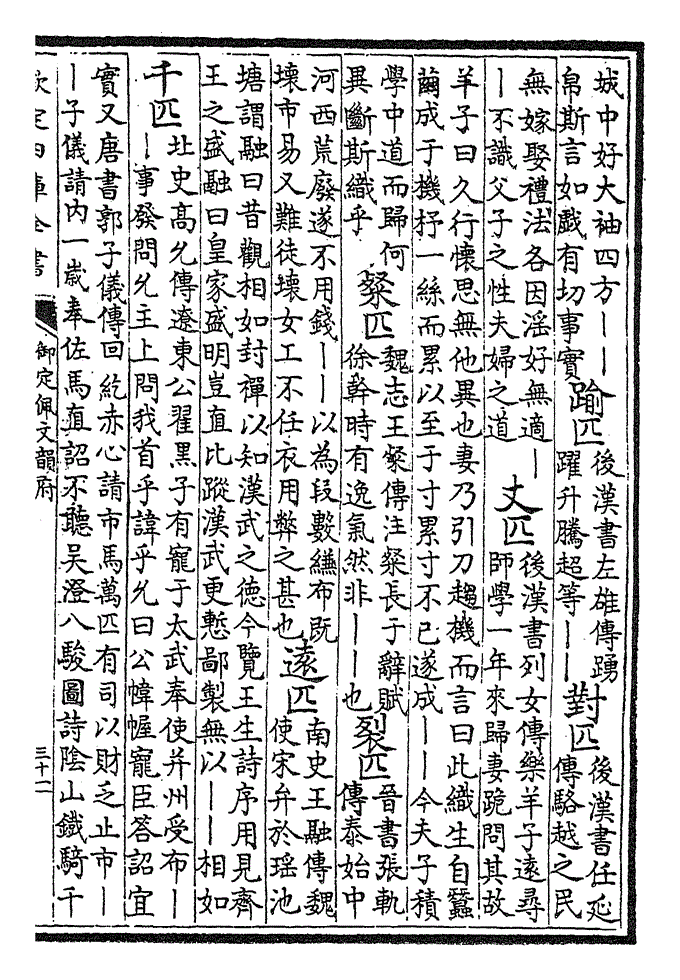 城中好大袖四方丨丨
帛斯言如戲有切事實
踰匹
後漢書左雄傳踴
躍升騰超等丨丨
對匹
後漢書任延
傳駱越之民
無嫁娶禮法各因淫好無適丨
丨不識父子之性夫婦之道
丈匹
後漢書列女傳樂羊子遠尋
師學一年來歸妻跪問其故
羊子曰久行懷思無他異也妻乃引刀趨機而言曰此織生自蠶
繭成于機杼一絲而累以至于寸累寸不已遂成丨丨今夫子積
學中道而歸何
異斷斯織乎
粲匹
魏志王粲傳注粲長于辭賦
徐幹時有逸氣然非丨丨也
裂匹
晉書張軌
傳泰始中
河西荒廢遂不用錢丨丨以為段數縑布既
壞市易又難徒壞女工不任衣用弊之甚也
遠匹
南史王融傳魏
使宋弁於瑶池
塘謂融曰昔觀相如封禪以知漢武之德今覽王生詩序用見齊
王之盛融曰皇家盛明豈直比蹤漢武更慙鄙製無以丨丨相如
千匹
北史高允傳遼東公翟黑子有寵于太武奉使并州受布丨
丨事發問允主上問我首乎諱乎允曰公幃幄寵臣答詔宜
實又唐書郭子儀傳回紇赤心請市馬萬匹有司以財乏止市丨
丨子儀請内一歲奉佐馬直詔不聽吴澄八駿圖詩陰山鐵騎千
欽定四庫全書
御定佩文韻府
三十二